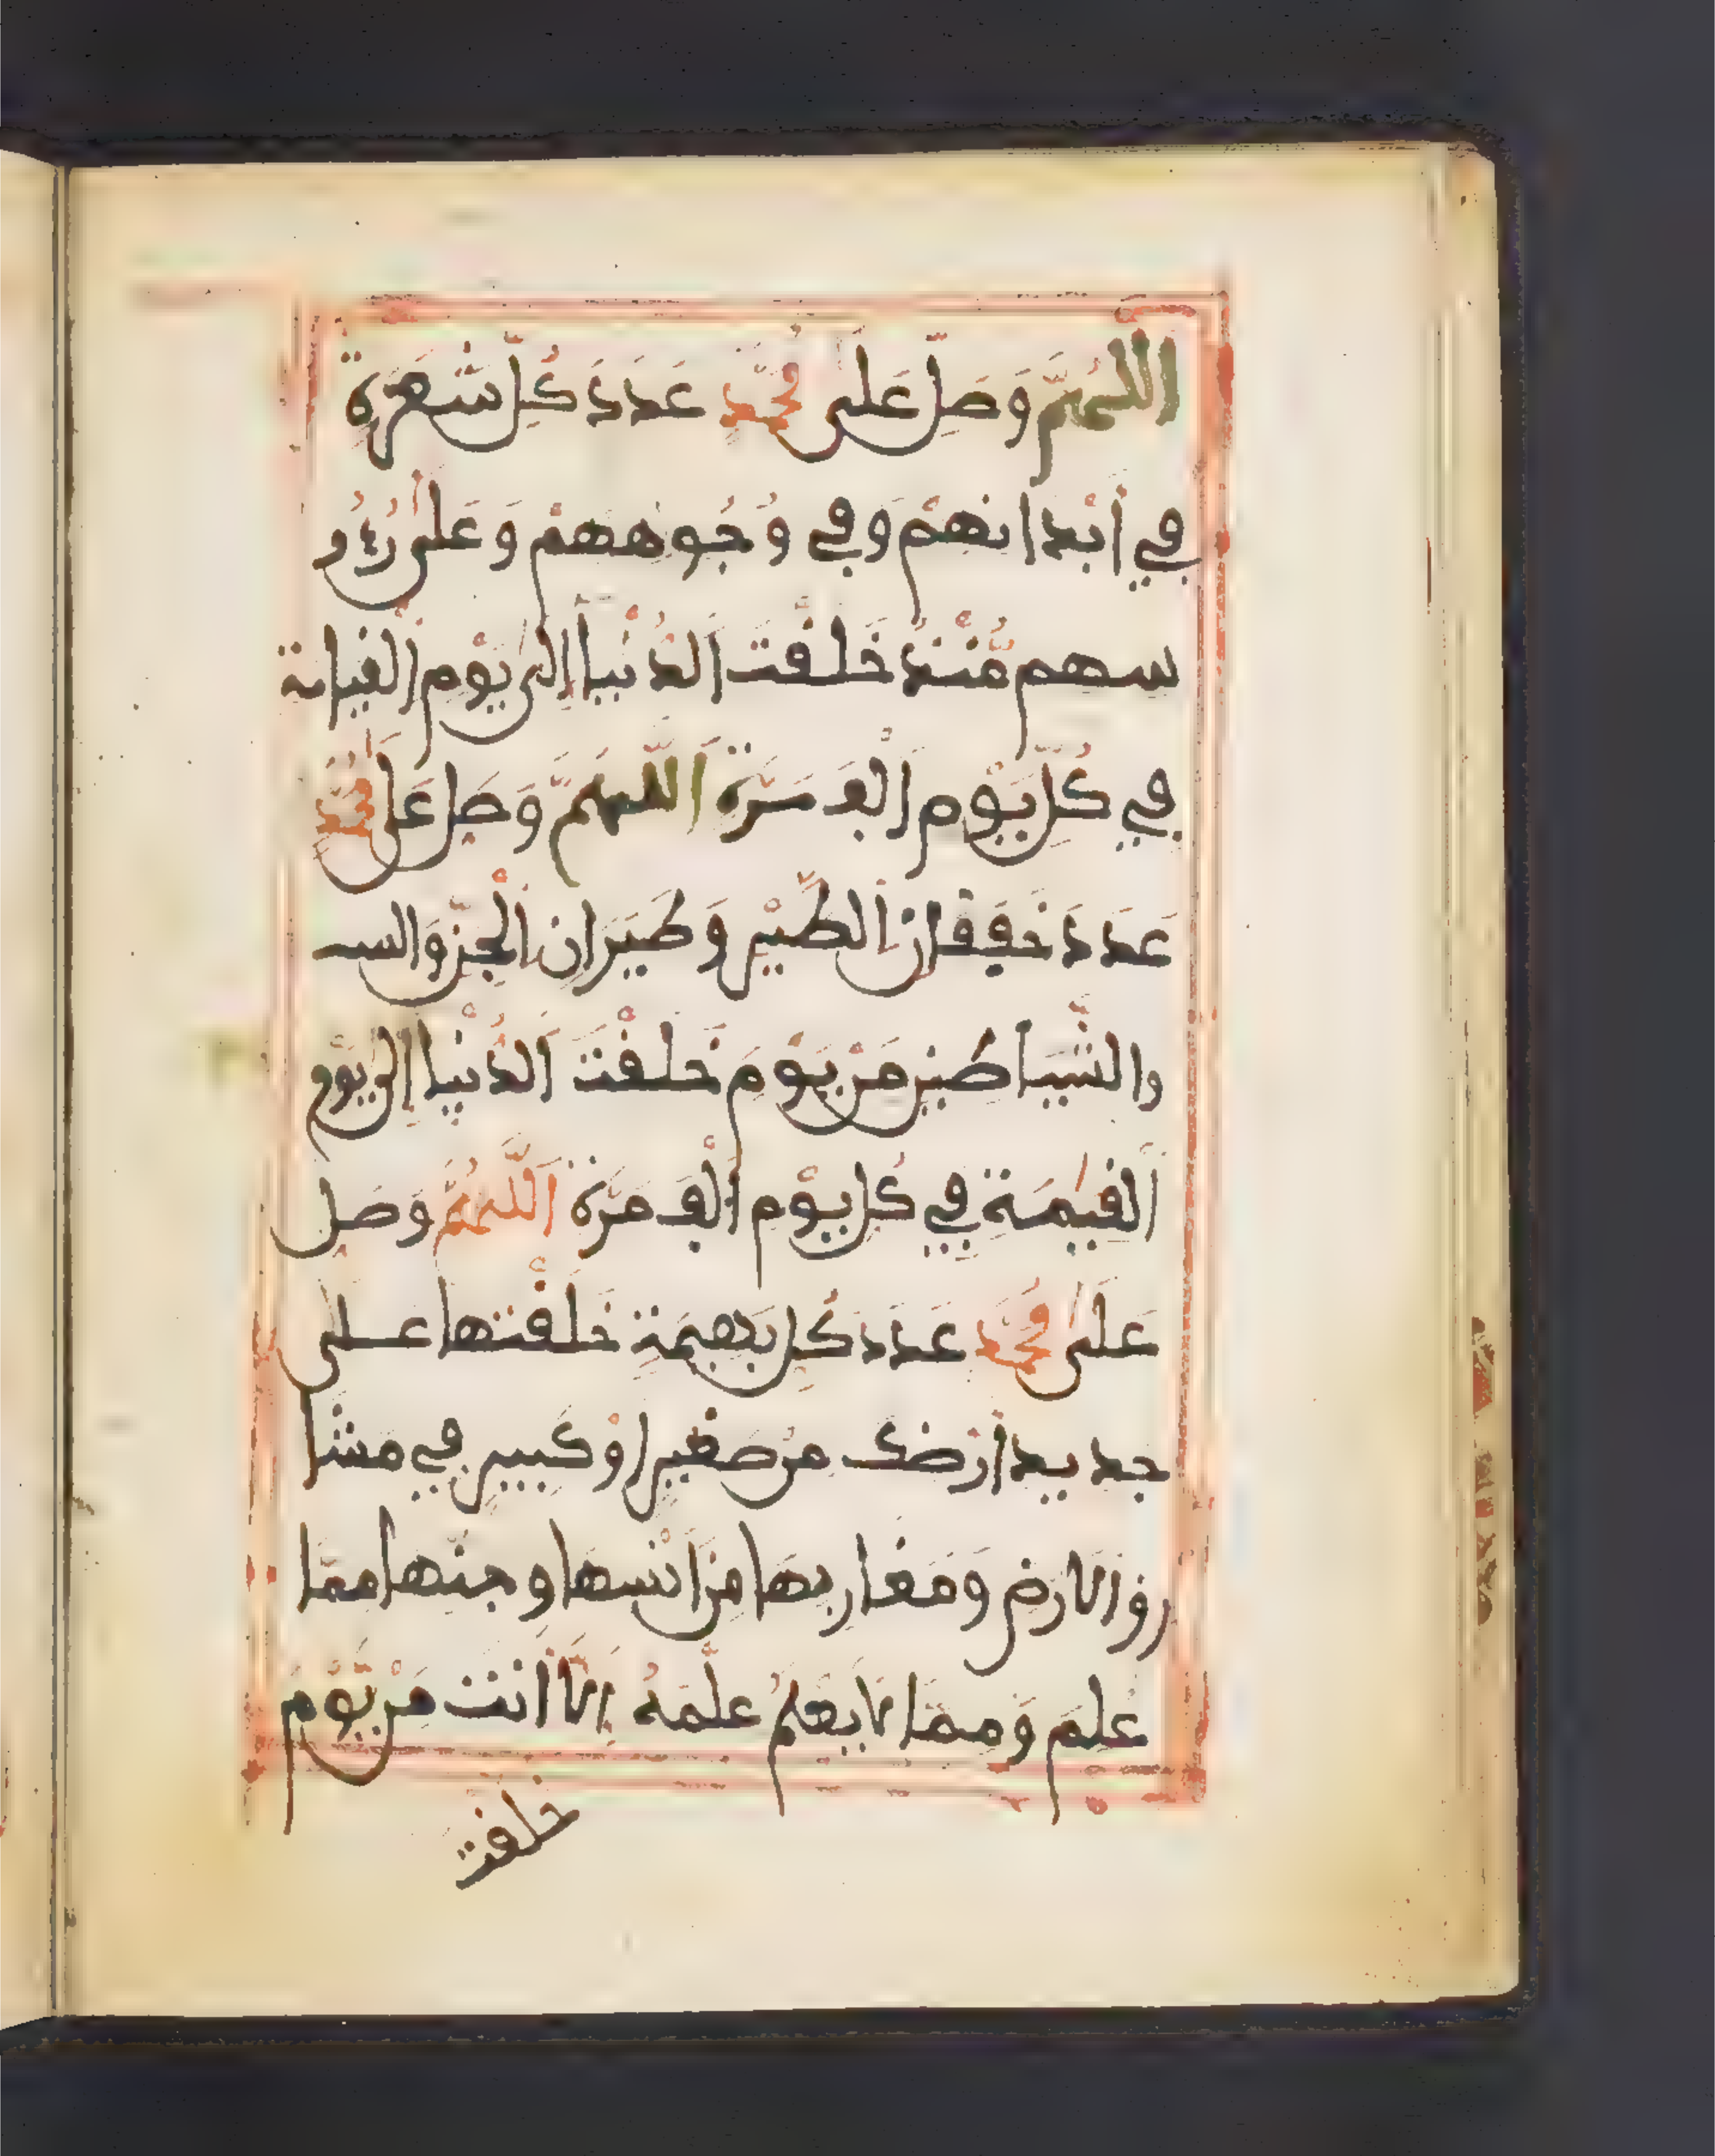 اللهُمَّ وَصَلِّ عَلَى مُحَمَّدٍ عَدَدَ كُلِّ شَعَرَةٍ
فِي أَبْدَانِهِمْ وَفِي وُجُوهِهِمْ وَعَلَى رُءُو
سِهِم مُّنْذُ خَلَقْتَ الدُّنْيَا إِلَى يَوْمِ الْقِيَامَةِ
فِي كُلِّ يَوْمٍ أَلْفَ مَرَّةٍ اَللَّهُمَّ وَصَلِّ عَلَى مُحَمَّدٍ
عَدَدَ خَفَقَانِ الطَّيْرِ وَطَيَرَانِ الْجِنِّ وَالسـ
والشَّيَاطِينِ مِنْ يَوْمَ خَلَقْتَ الدُّنْيَا إِلَى يَوْمِ
الْقِيَٰمَةِ فِي كُلِّ يَوْمٍ أَلْفَ مَرَّةٍ اَللَّهُمَّ وَصَلِّ
عَلَى مُحَمَّدٍ عَدَدَ كُلِّ بَهِيمَةٍ خَلَقْتَهَا عَلَى
جديد أَرْضِكَ من صغير اوْ كَبِيرٍ فِي مَشَا
رِقِ الَارْضِ وَمَغَارِبِهَا مِنْ انْسِهَا وجِنِّهَا مِمَّا
عُلِمَ وَمِمَّا لَا يَعْلَمُ عِلْمَهُ إِلَّا أَنتَ مِنْ يَّوْمَ
خلقت